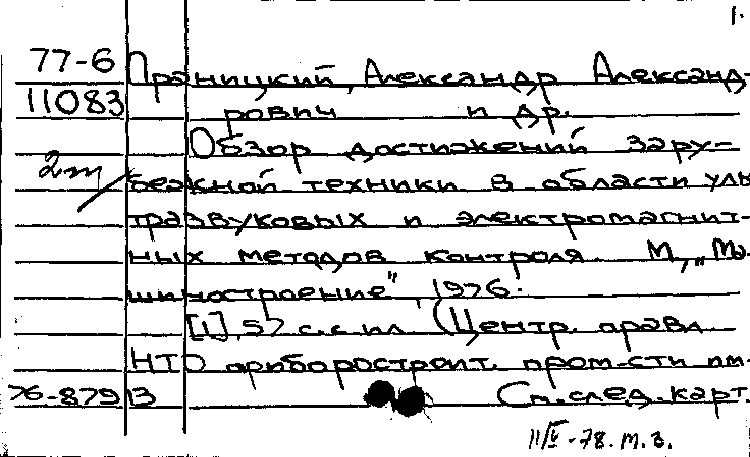 1.
77-6 Праницкий, Александр Александ-
11083 рович и др.
Обзор достижений зару-
2т бежной техники в области уль
тразвуковых и электромагнит-
ных методов контроля. М., „Ма-
шиностроение", 1976.
[1], 57 с. с ил. (Центр. правл.
НТО приборостроит. пром-сти им.
76-87913 См. след. карт.
11/V-78. т. з.